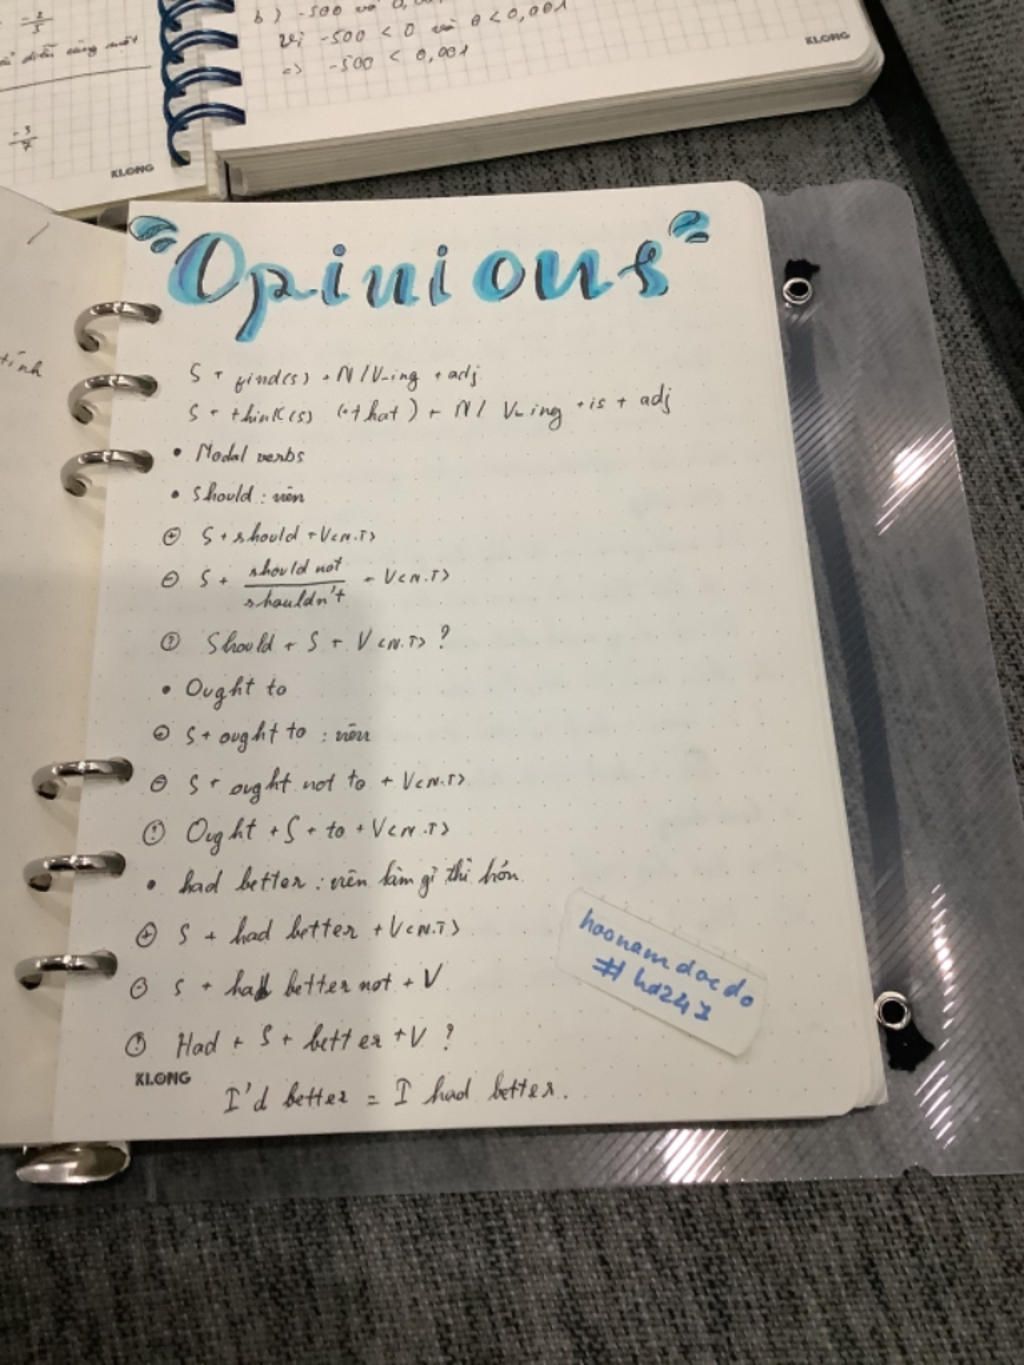 -2/5
-3/7
KLONG
b) -500 và 0,
Vì -500 < 0 và 0 < 0,001
=> -500 < 0,001
KLONG
tính
"Opinions"
S + find(s) + N / V-ing + adj
S + think(s) (+ that) + N / V-ing + is + adj
• Modal verbs
• Should : nên
(+) S + should + V<N.T>
(-) S + should not / shouldn't + V<N.T>
(?) Should + S + V<N.T> ?
• Ought to
(+) S + ought to : nên
(-) S + ought not to + V<N.T>
(?) Ought + S + to + V<N.T>
• had better : nên làm gì thì hơn
(+) S + had better + V<N.T>
(-) S + had better not + V
(?) Had + S + better + V ?
KLONG
I'd better = I had better.
haonamdacdo
#hd247